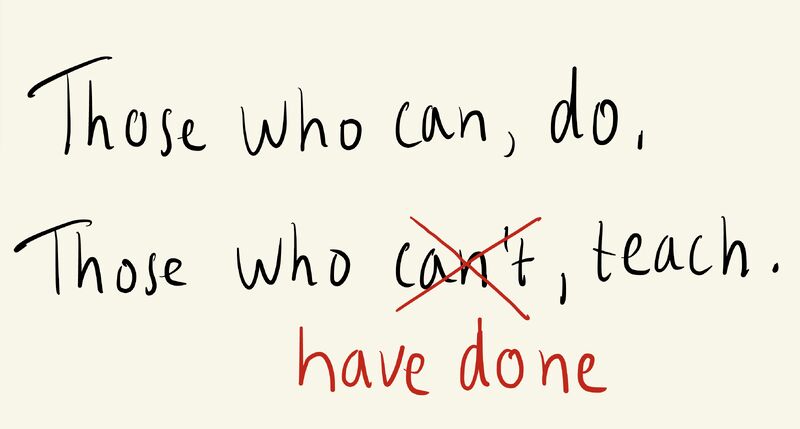 Those who can, do.
Those who can't, teach.
have done